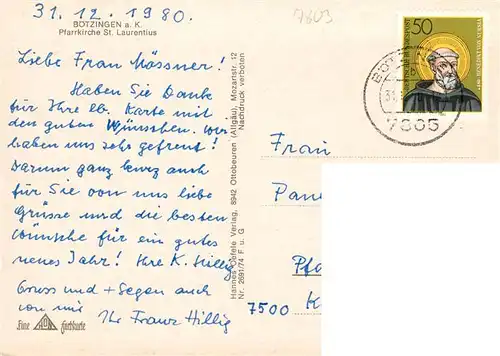 31.12.1980.
BÖTZINGEN a. K.
Pfarrkirche St. Laurentius
Liebe Frau Mössner!
Haben Sie Dank
für Ihre lb. Karte mit
den guten Wünschen. Wir
haben uns sehr gefreut!
Darum ganz kurz auch
für Sie von uns liebe
Grüsse und die besten
Wünsche für ein gutes
neues Jahr! Ihre K. Hillig
Gruss und + Segen auch
von mir
Ihr Franz Hillig
Eine
Hannes Oefele Verlag, 8942 Ottobeuren (Allgäu), Mozartstr. 12
Nr. 2691/74 F u. G
Nachdruck verboten
7803
50
BÖTZ
31.
7805
Frau
Pan
Pfa
7500 K